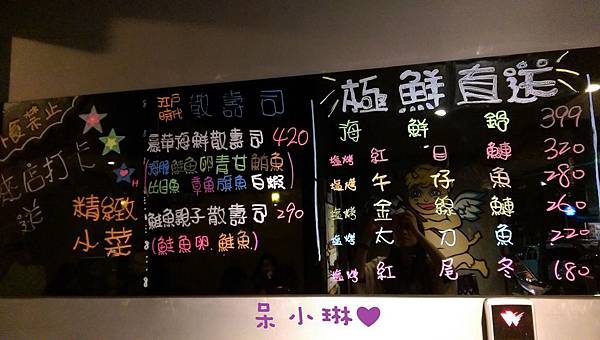 禁止
打卡
送
精緻
小菜
江戶時代 散壽司
豪華海鮮散壽司 420
海膽 鮭魚卵 青甘 鮪魚
比目魚 章魚 旗魚 白蝦
鮭魚親子散壽司 290
(鮭魚卵.鮭魚)
極鮮直送
海鮮鍋 399
鹽烤 紅目鰱 320
鹽烤 午仔魚 280
鹽烤 金線鰱 260
鹽烤 太刀魚 220
鹽烤 紅尾冬 180
呆小琳